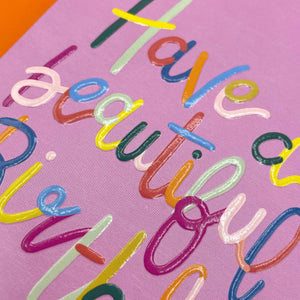 Have a
beautiful
Birthday